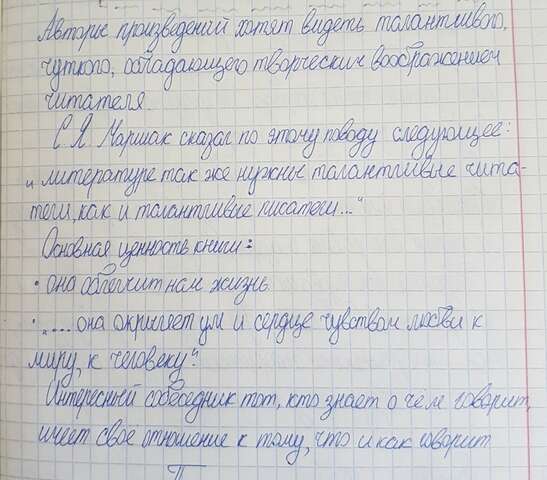 Авторы произведений хотят видеть талантливого,
чуткого, обладающего творческим воображением
читателя
С Я Маршак сказал по этому поводу следующее:
„литературе так же нужны талантливые чита-
тели, как и талантливые писатели..."
Основная ценность книги:
• она облегчит нам жизнь
• „.... она окрыляет ум и сердце чувством любви к
миру, к человеку".
Интересный собеседник тот, кто знает о чем говорит,
имеет свое отношение к тому, что и как говорит